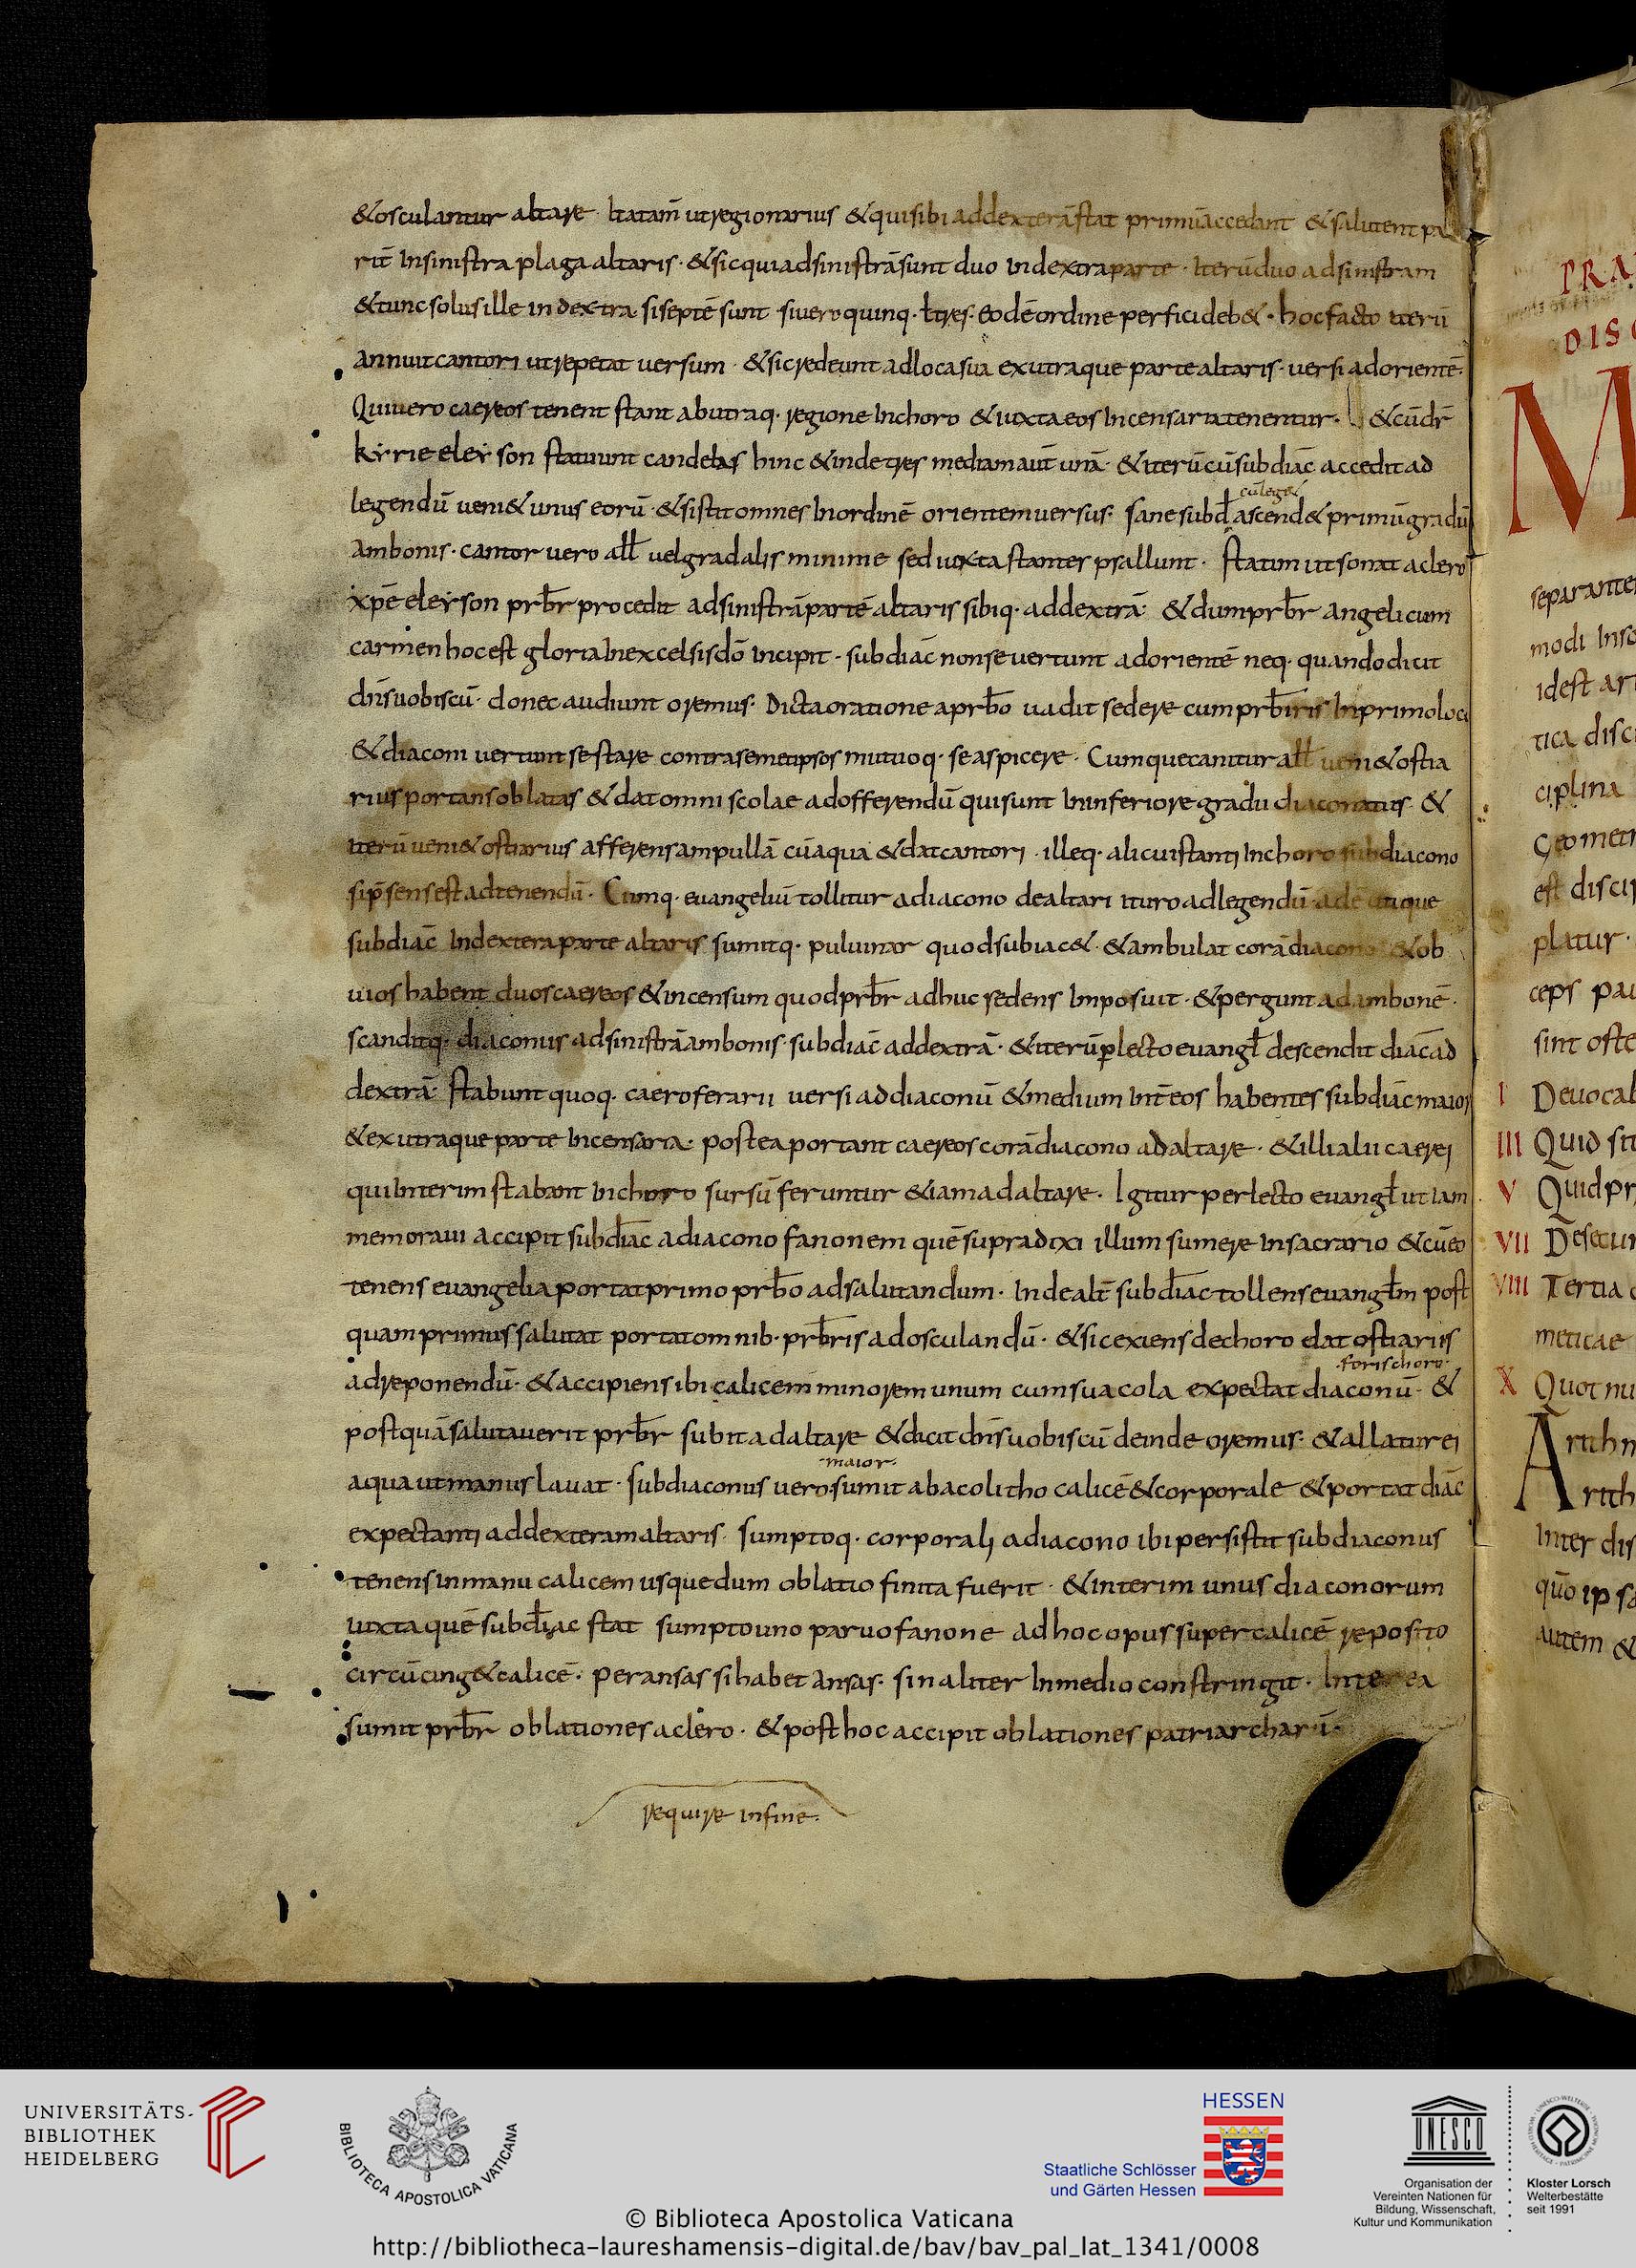 &osculantur altare· Ita tam̄ ut regionarius &qui sibi ad dexterā stat primū accedant &salutent pa
rit̄ In sinistra plaga altaris· &sic qui ad sinistrā sunt duo In dextra parte· Iterū duo ad sinistram
&tunc solus ille in dextra· si septē sunt si uero quinq· ł tres· eodē ordine perfici deb&· hoc facto iterū
annuit cantori ut repetat versum· &sic redeunt ad loca sua ex utraque parte altaris· versi ad orientē·
Qui uero caereos tenent stant ab utraq· regione In choro &iuxta eos Incensaria tenentur· &cū dr̄
kyrie eleyson statuunt candelas hinc &inde tres mediam aut̄ unā· &iterū cū subdiac̄ accedit ad
legendū ueni& unus eorū· &sistit omnes In ordinē orientem versus· sane subđ ascend& primū gradū
cū leg&
Ambonis· cantor vero all̄ vel gradalis minime sed iuxta stantes psallunt· statim ut sonat a clero
xp̄e eleyson prb̄r procedit ad sinistrā partē altaris sibiq· ad dextrā· &dum prb̄r angelicum
carmen hoc est gloria In excelsis dō Incipit· subdiac̄ non se vertunt ad orientē neq· quando dicit
dn̄s uobiscū· donec audiunt oremus· Dicta oratione a prb̄o uadit sedere cum prb̄iris In primo loco
&diaconi vertunt se stare contra semetipsos mutuoq· se aspicere· Cumque canitur all̄ ueni& ostia
rius portans oblatas &dat omni scolae ad offerendū qui sunt In inferiore gradu diaconatus· &
iterū ueni& ostiarius afferens ampullā cū aqua &dat cantori· illeq· alicui stanti In choro subdiacono
si p̄sens est ad tenendū· Cumq· euangeliū tollitur a diacono de altari ituro ad legendū
subdiac̄ In dextera parte altaris sumitq· puluinar quod subiac&· &ambulat corā diacono &ob
uios habent duos caereos &incensum quod prb̄r adhuc sedens Imposuit· &pergunt ad ambonē·
scanditq· diaconus ad sinistrā ambonis· subdiac̄ ad dextrā· &iterū ꝑlecto euangł descendit diac̄ ad
dextrā· stabunt quoq· caeroferarii versi ad diaconū &medium Int̄ eos habentes subdiac̄ maior
&ex utraque parte Incensaria· postea portant caereos corā diacono ad altare· &illi alii caerei
qui Interim stabant In choro sursū feruntur &iam ad altare· Igitur perlecto euangł ut iam
memoraui accipit subdiac̄ a diacono fanonem quē supra dixi illum sumere In sacrario &cū eo
tenens euangelia portat primo prb̄o ad salutandum· Inde alt̄ subdiac̄ tollens euangłm post
quam primus salutat portat omnib· prb̄ris ad osculandū· &sic exiens de choro dat ostiariis
·foris choro·
ad reponendū· &accipiens ibi calicem minorem unum cum sua cola expectat diaconū· &
postquā salutauerit prb̄r subit ad altare &dicit dn̄s uobiscū deinde oremus· &allatur ei
aqua ut manus lauat· subdiaconus vero sumit ab acolitho calicē &corporale &portat diac̄
·maior·
expectanti ad dexteram altaris· sumptoq· corporali a diacono ibi persistit subdiaconus
tenens in manu calicem usque dum oblatio finita fuerit· &interim unus diaconorum
iuxta quē subdiac̄ stat sumpto uno paruo fanone ad hoc opus super calicē reposito
circūcing& calicē· per ansas si habet ansas· sin aliter In medio constringit· Interea
sumit prb̄r oblationes a clero· &post hoc accipit oblationes patriarcharū·
require in fine·
PRA
DISC
M
separanter
modi Inso
idest ar
tica disci
ciplina
Geometr
est disci
platur·
ceps pa
sint oste
I Deuocab
III Quid sit
V Quid pr
VII De secun
VIII Tertia
meticae
X Quot nu
Arithm
rith
Inter dis
quo ips
autem &
UNIVERSITÄTS-
BIBLIOTHEK
HEIDELBERG
BIBLIOTECA APOSTOLICA VATICANA
HESSEN
Staatliche Schlösser
und Gärten Hessen
UNESCO
Organisation der
Vereinten Nationen für
Bildung, Wissenschaft,
Kultur und Kommunikation
Kloster Lorsch
Welterbestätte
seit 1991
© Biblioteca Apostolica Vaticana
http://bibliotheca-laureshamensis-digital.de/bav/bav_pal_lat_1341/0008